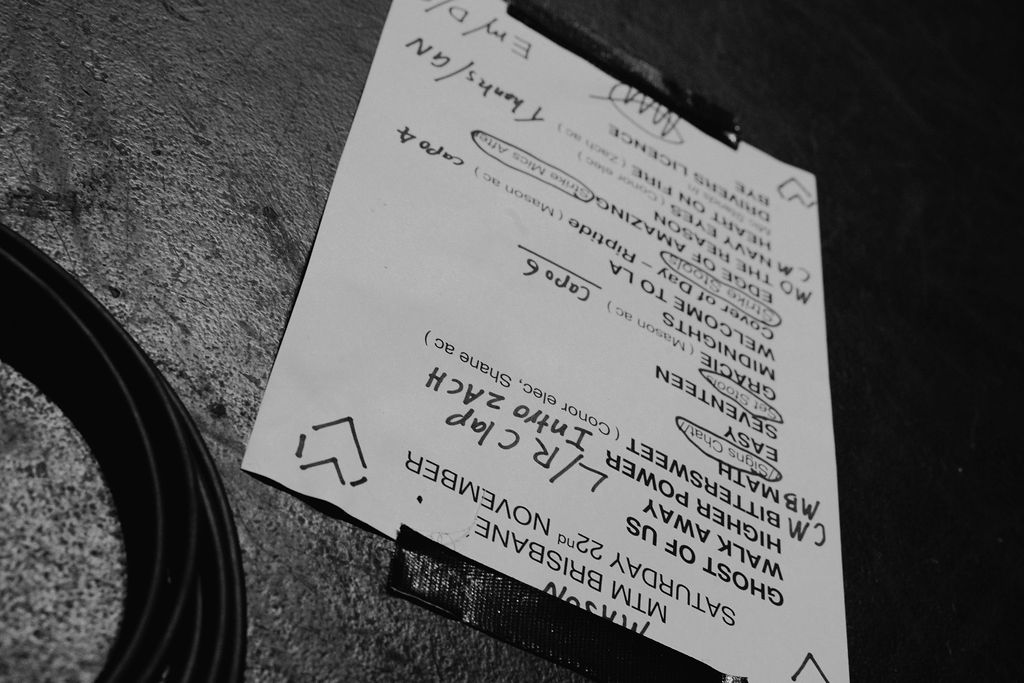 MASON
MTM BRISBANE
SATURDAY 22nd NOVEMBER
GHOST OF US
WALK AWAY
HIGHER POWER L/R Clap
CM BITTERSWEET ( Conor elec, Shane ac ) Intro ZACH
MB MATH
(Signs Chat)
EASY
SEVENTEEN
Set Stools
GRACIE ( Mason ac )
MIDNIGHTS
WELCOME TO LA Capo 6
Cover of Day – Riptide ( Mason ac ) capo 4
Strike Stools
MO EDGE
THE OF AMAZING Strike Mics After
CM NAE REASON
HEAVY EYES ( Conor elec )
HEART ON FIRE ( Zach ac ) Thanks/GN
DRIVERS LICENCE
BYE
Em/D/